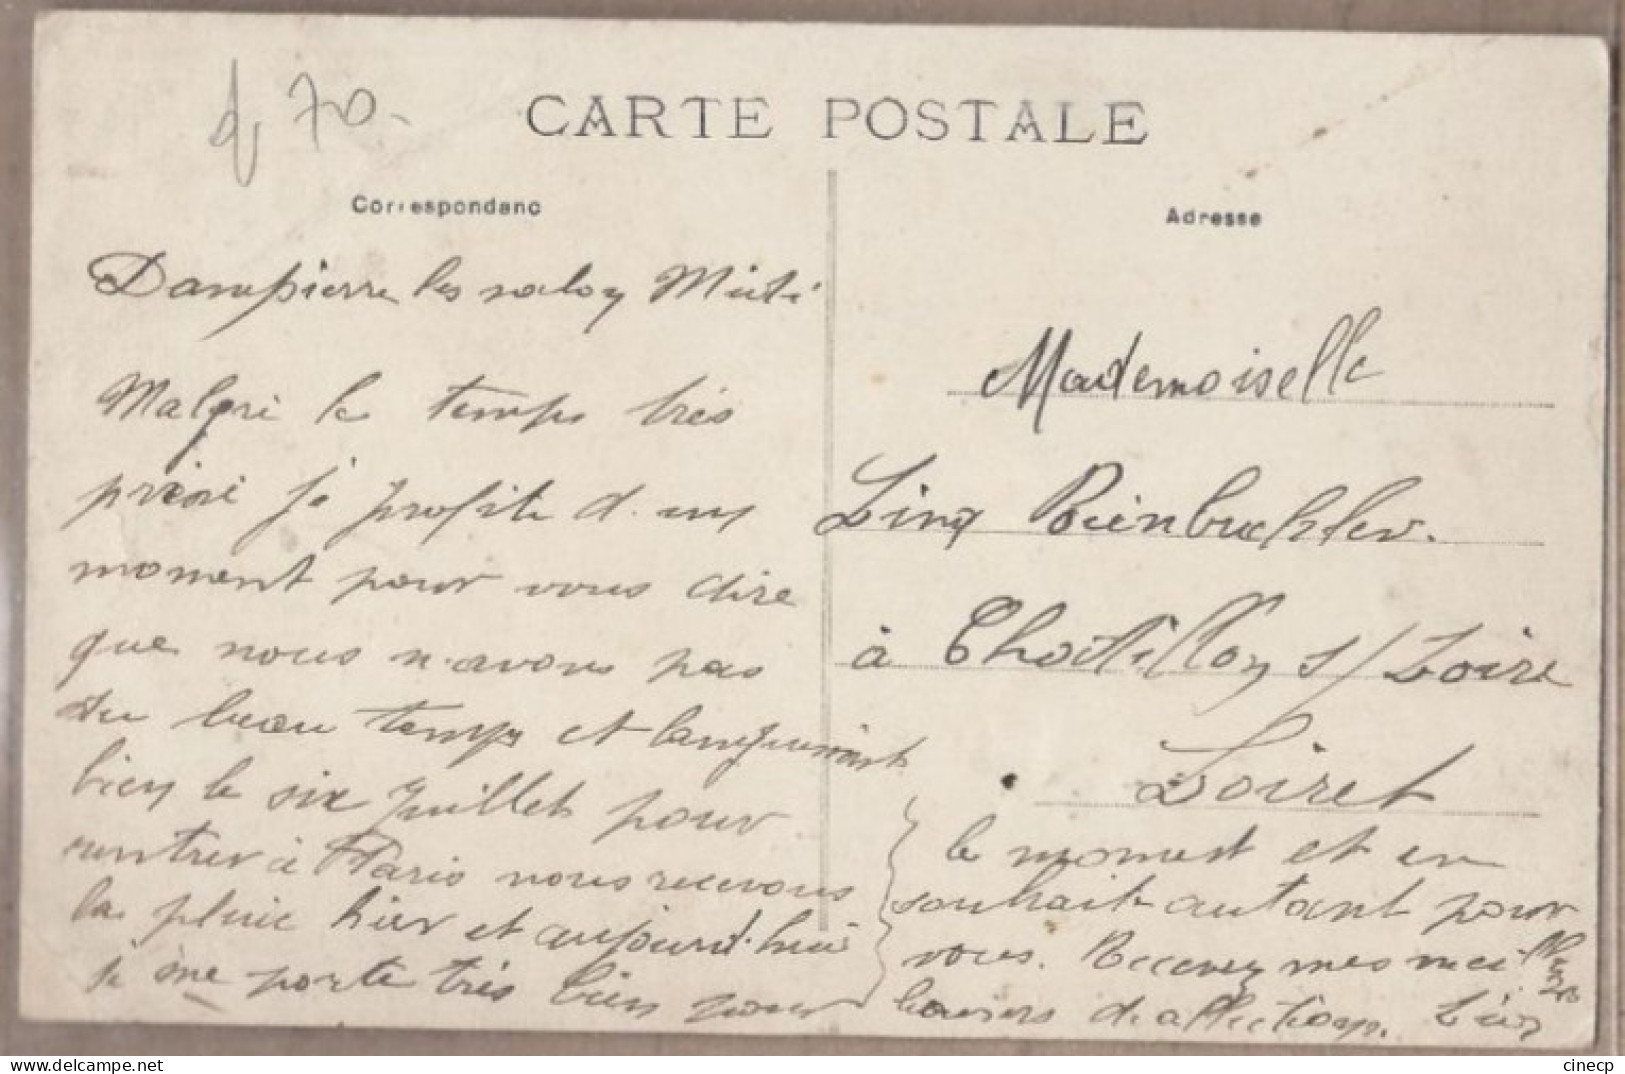 70.
CARTE POSTALE
Correspondanc
Adresse
Dampierre les
Malgré le temps très
je profite d'un
moment pour vous dire
que nous n'avons pas
du beau temps et languissant
bien le six Juillet pour
rentrer à Paris nous recevons
la pluie hier et aujourd'hui
je me porte très bien pour
Mademoiselle
à Chatillon s/Loire
Loiret
le moment et en
souhaite autant pour
vous. Recevez mes meilleurs
baisers d'affections.
cinecp